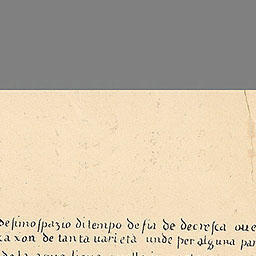 desimo spazio di tempo desia de decresca oue
ca xon de tanta uarieta unde per alguna par